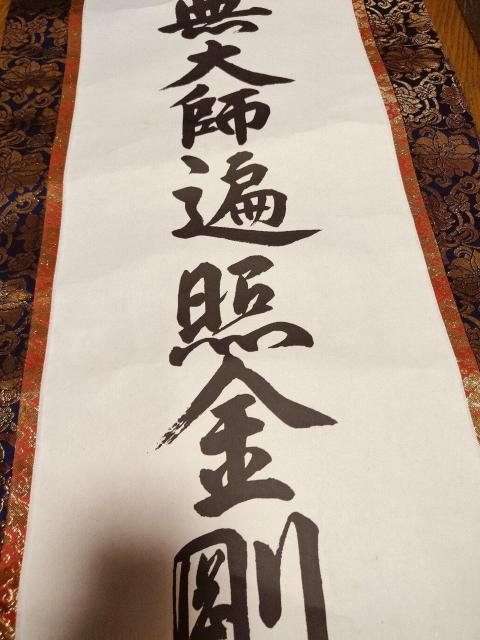 無大師遍照金剛